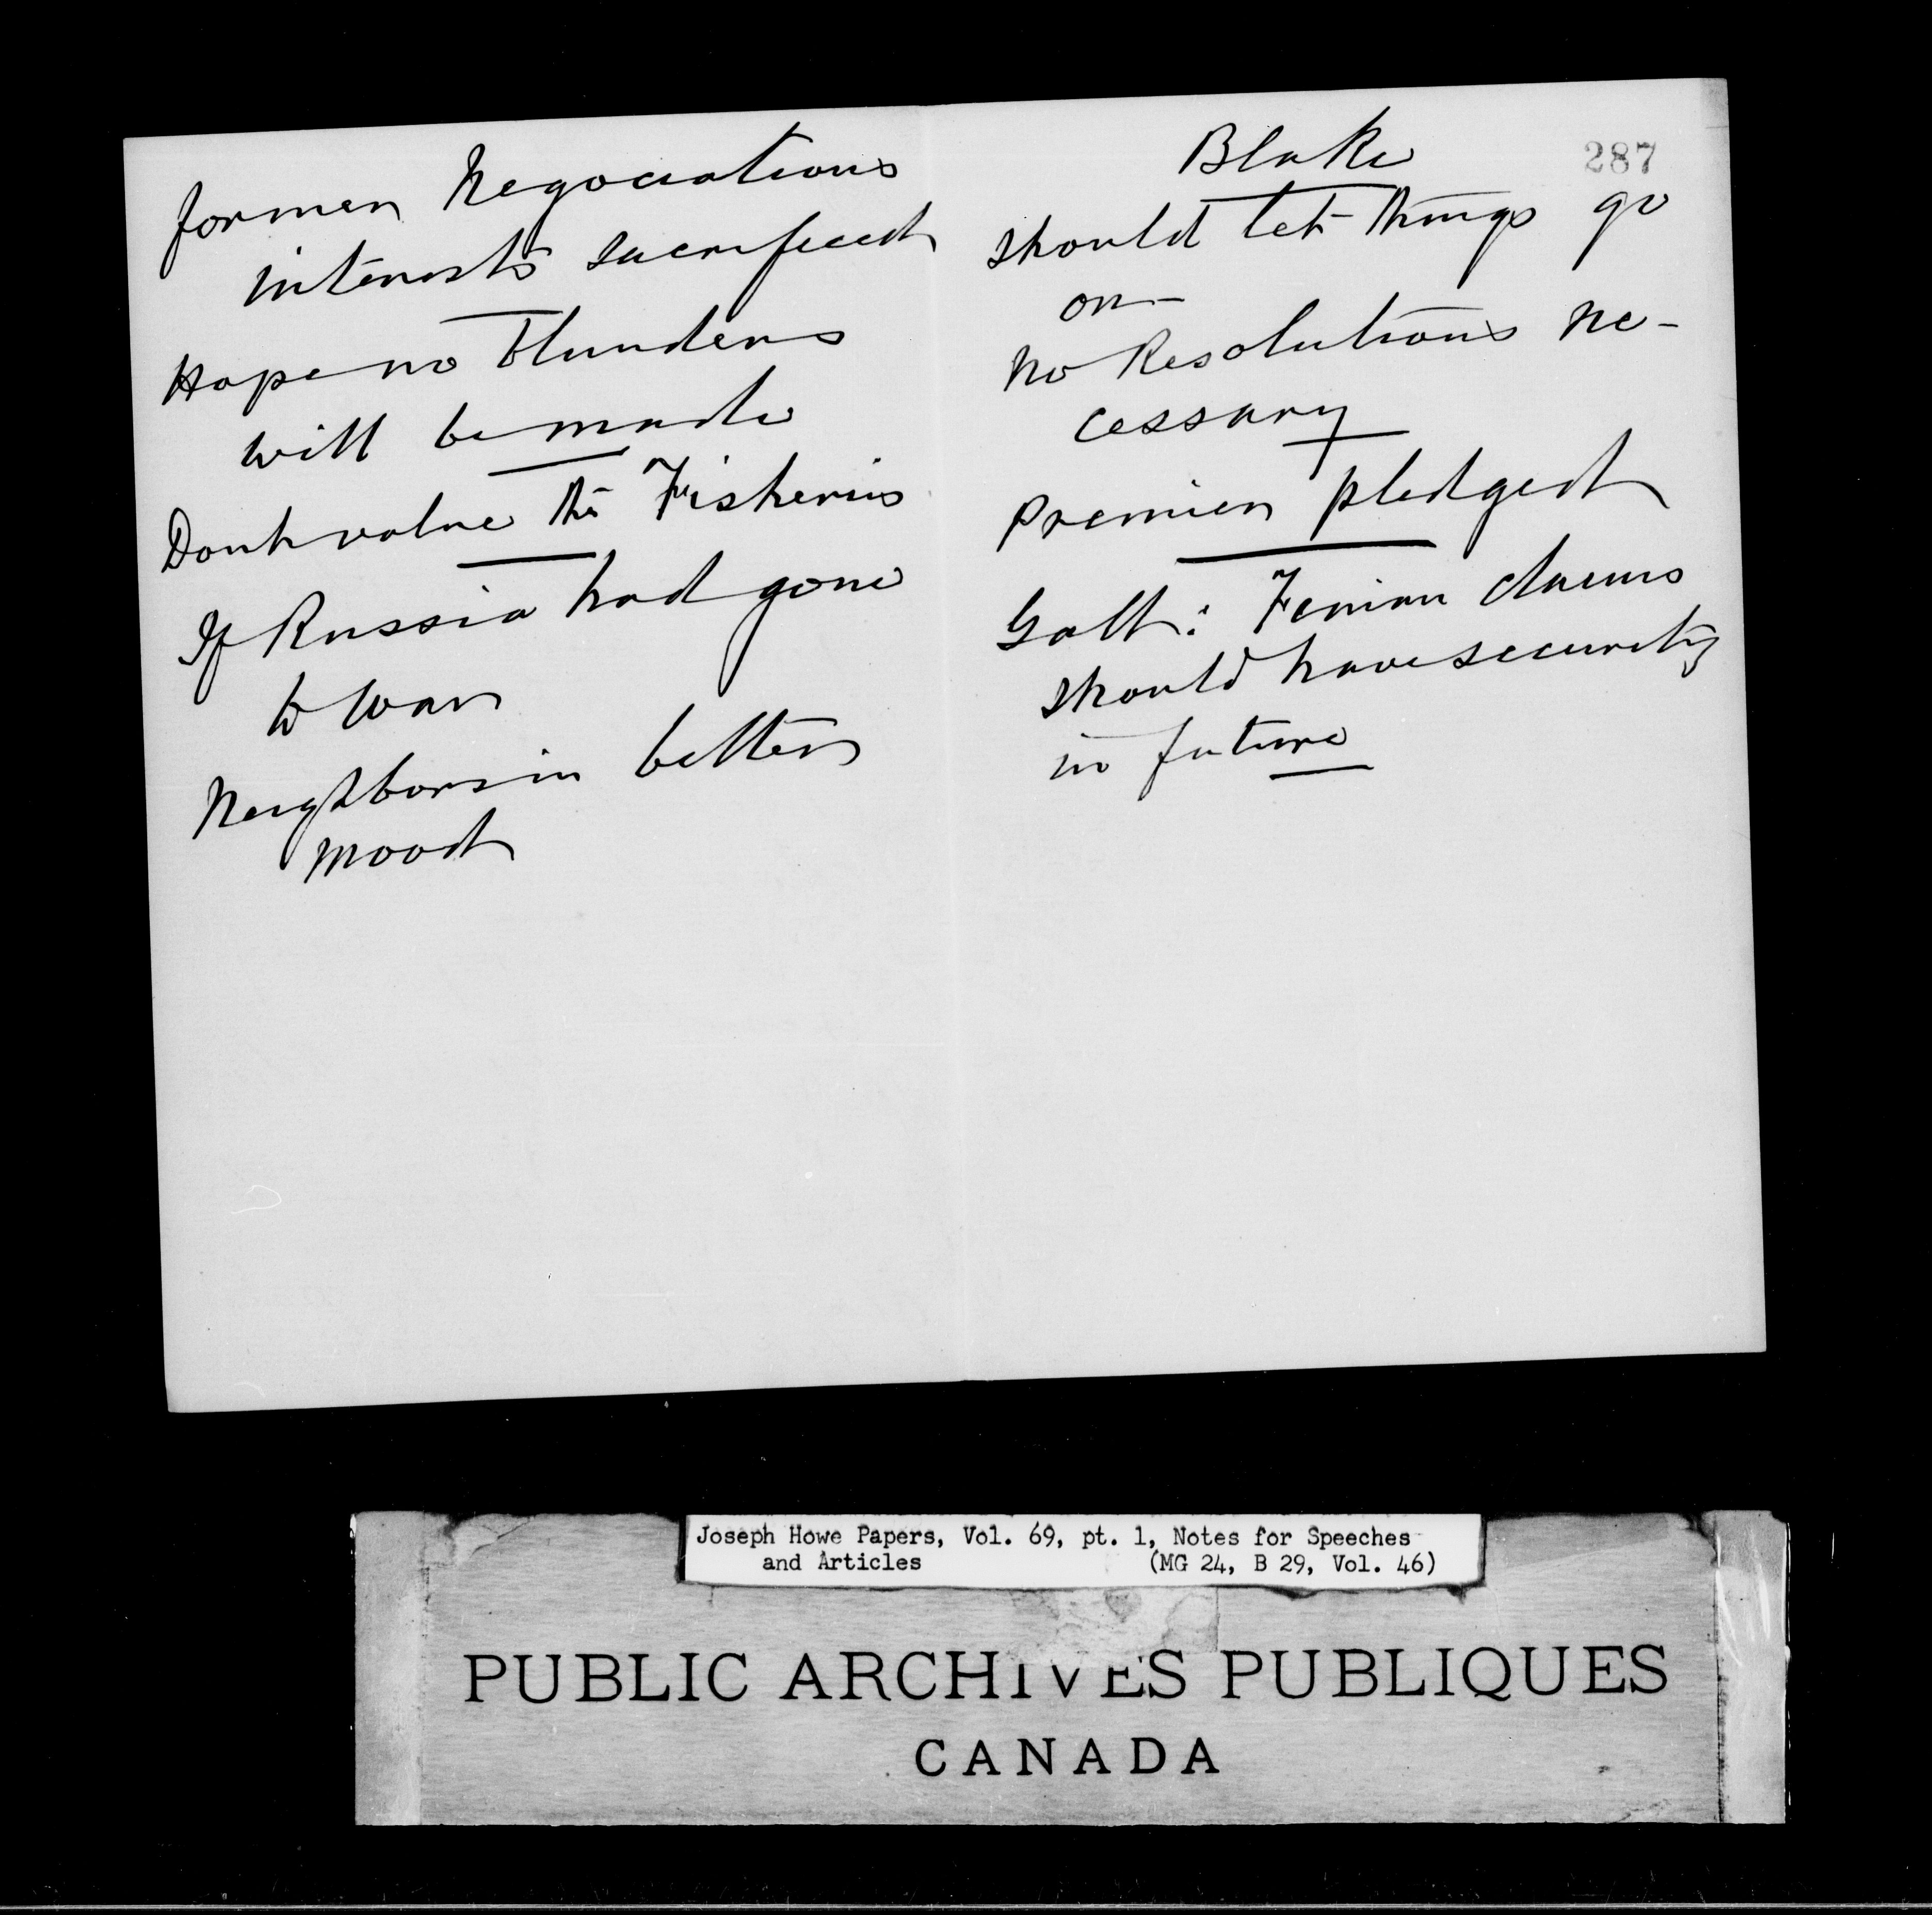 former Negociations
interests sacrificed
Hope no blunders
will be made
Dont value the Fisheries
If Russia had gone
to war
Neighbors in better
mood
287
Blake
should let things go
on -
No Resolutions ne-
cessary
Premier pledged
Galt: Fenian claims
should have security
in future
Joseph Howe Papers, Vol. 69, pt. 1, Notes for Speeches
and Articles (MG 24, B 29, Vol. 46)
PUBLIC ARCHIVES PUBLIQUES
CANADA